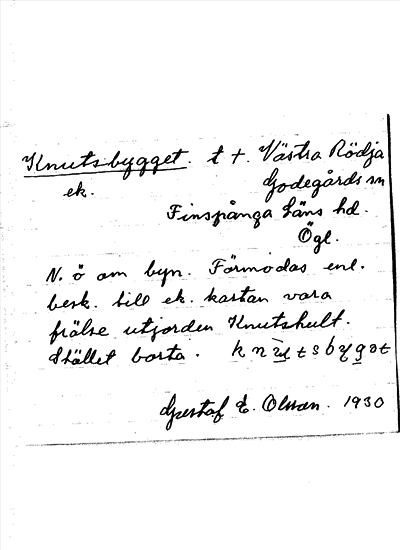 Knutsbygget. t +. Västra Rödja
ek. Godegårds sn
Finspånga läns hd.
Ögl.
N. ö om byn. Förmodas enl.
besk. till ek. kartan vara
frälse utjorden Knutshult.
Stället borta.
Gustaf E. Olsson. 1930